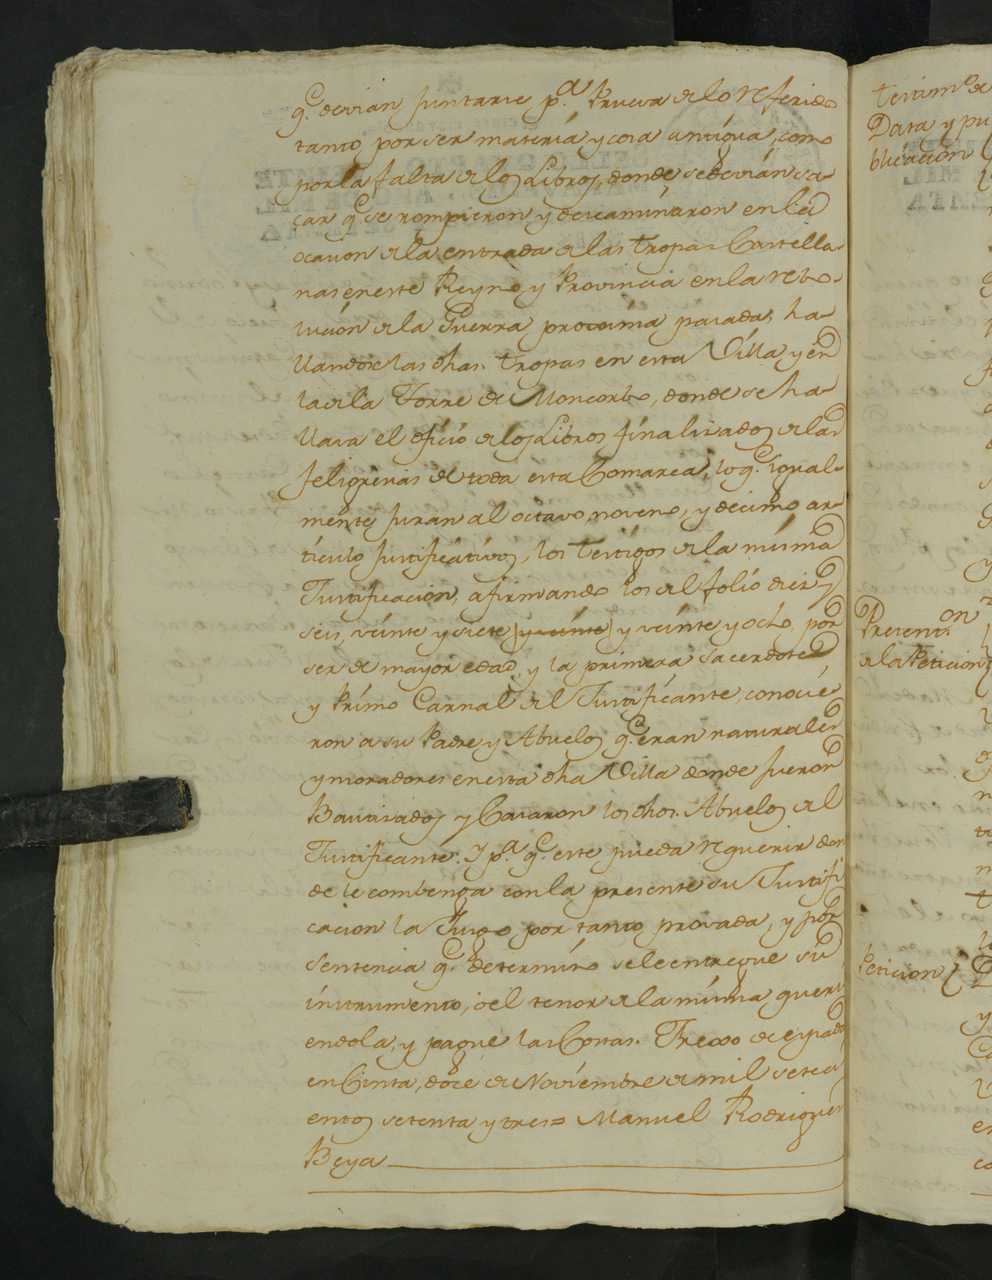 q.^e devian juntarse p.^a Prueva de lo referido
tanto por ser materia y cosa antigua, como
por la falta de los Libros, donde se devian sa-
car q.^e se rompieron y descaminaron en la
ocasion de la entrada de las tropas Castella-
nas en este Reyno y Provincia en la rebo-
lucion de la Guerra procsima pasada, ha-
llandose las dhas. tropas en esta Villa y en
la de la Torre de Moncorbo, donde se ha-
llava el oficio de los Libros finalizados de las
feligresias de toda esta Comarca, lo q.^e igual-
mente juran al octavo, noveno, y decimo ar-
ticulo justificativos, los testigos de la misma
Justificacion, afirmando los del folio diez y
seis, veinte y siete, y veinte y ocho, por
ser de mayor edad, y la primera sacerdote,
y Primo Carnal del Justificante, conocie-
ron a su Padre y Abuelos q.^e eran naturales
y moradores en esta dha Villa donde fueron
Bautizados y Casaron los dhos. Abuelos del
Justificante. Y p.^a q.^e este pueda requerir don
de le combenga con la presente su Justifi
cacion la Juzgo por tanto provada, y por
sentencia q.^e determino se le entregue su
instrumento, o el tenor de la misma queri
endola, y pague las Costas. Trexo de espada
en Cinta, doce de Noviembre de mil seteci
entos setenta y tres = Manuel Rodriguez
Beya
testim.^o de
Data y pu
blicacion
Presenta.^on
de la Peticion
Peticion